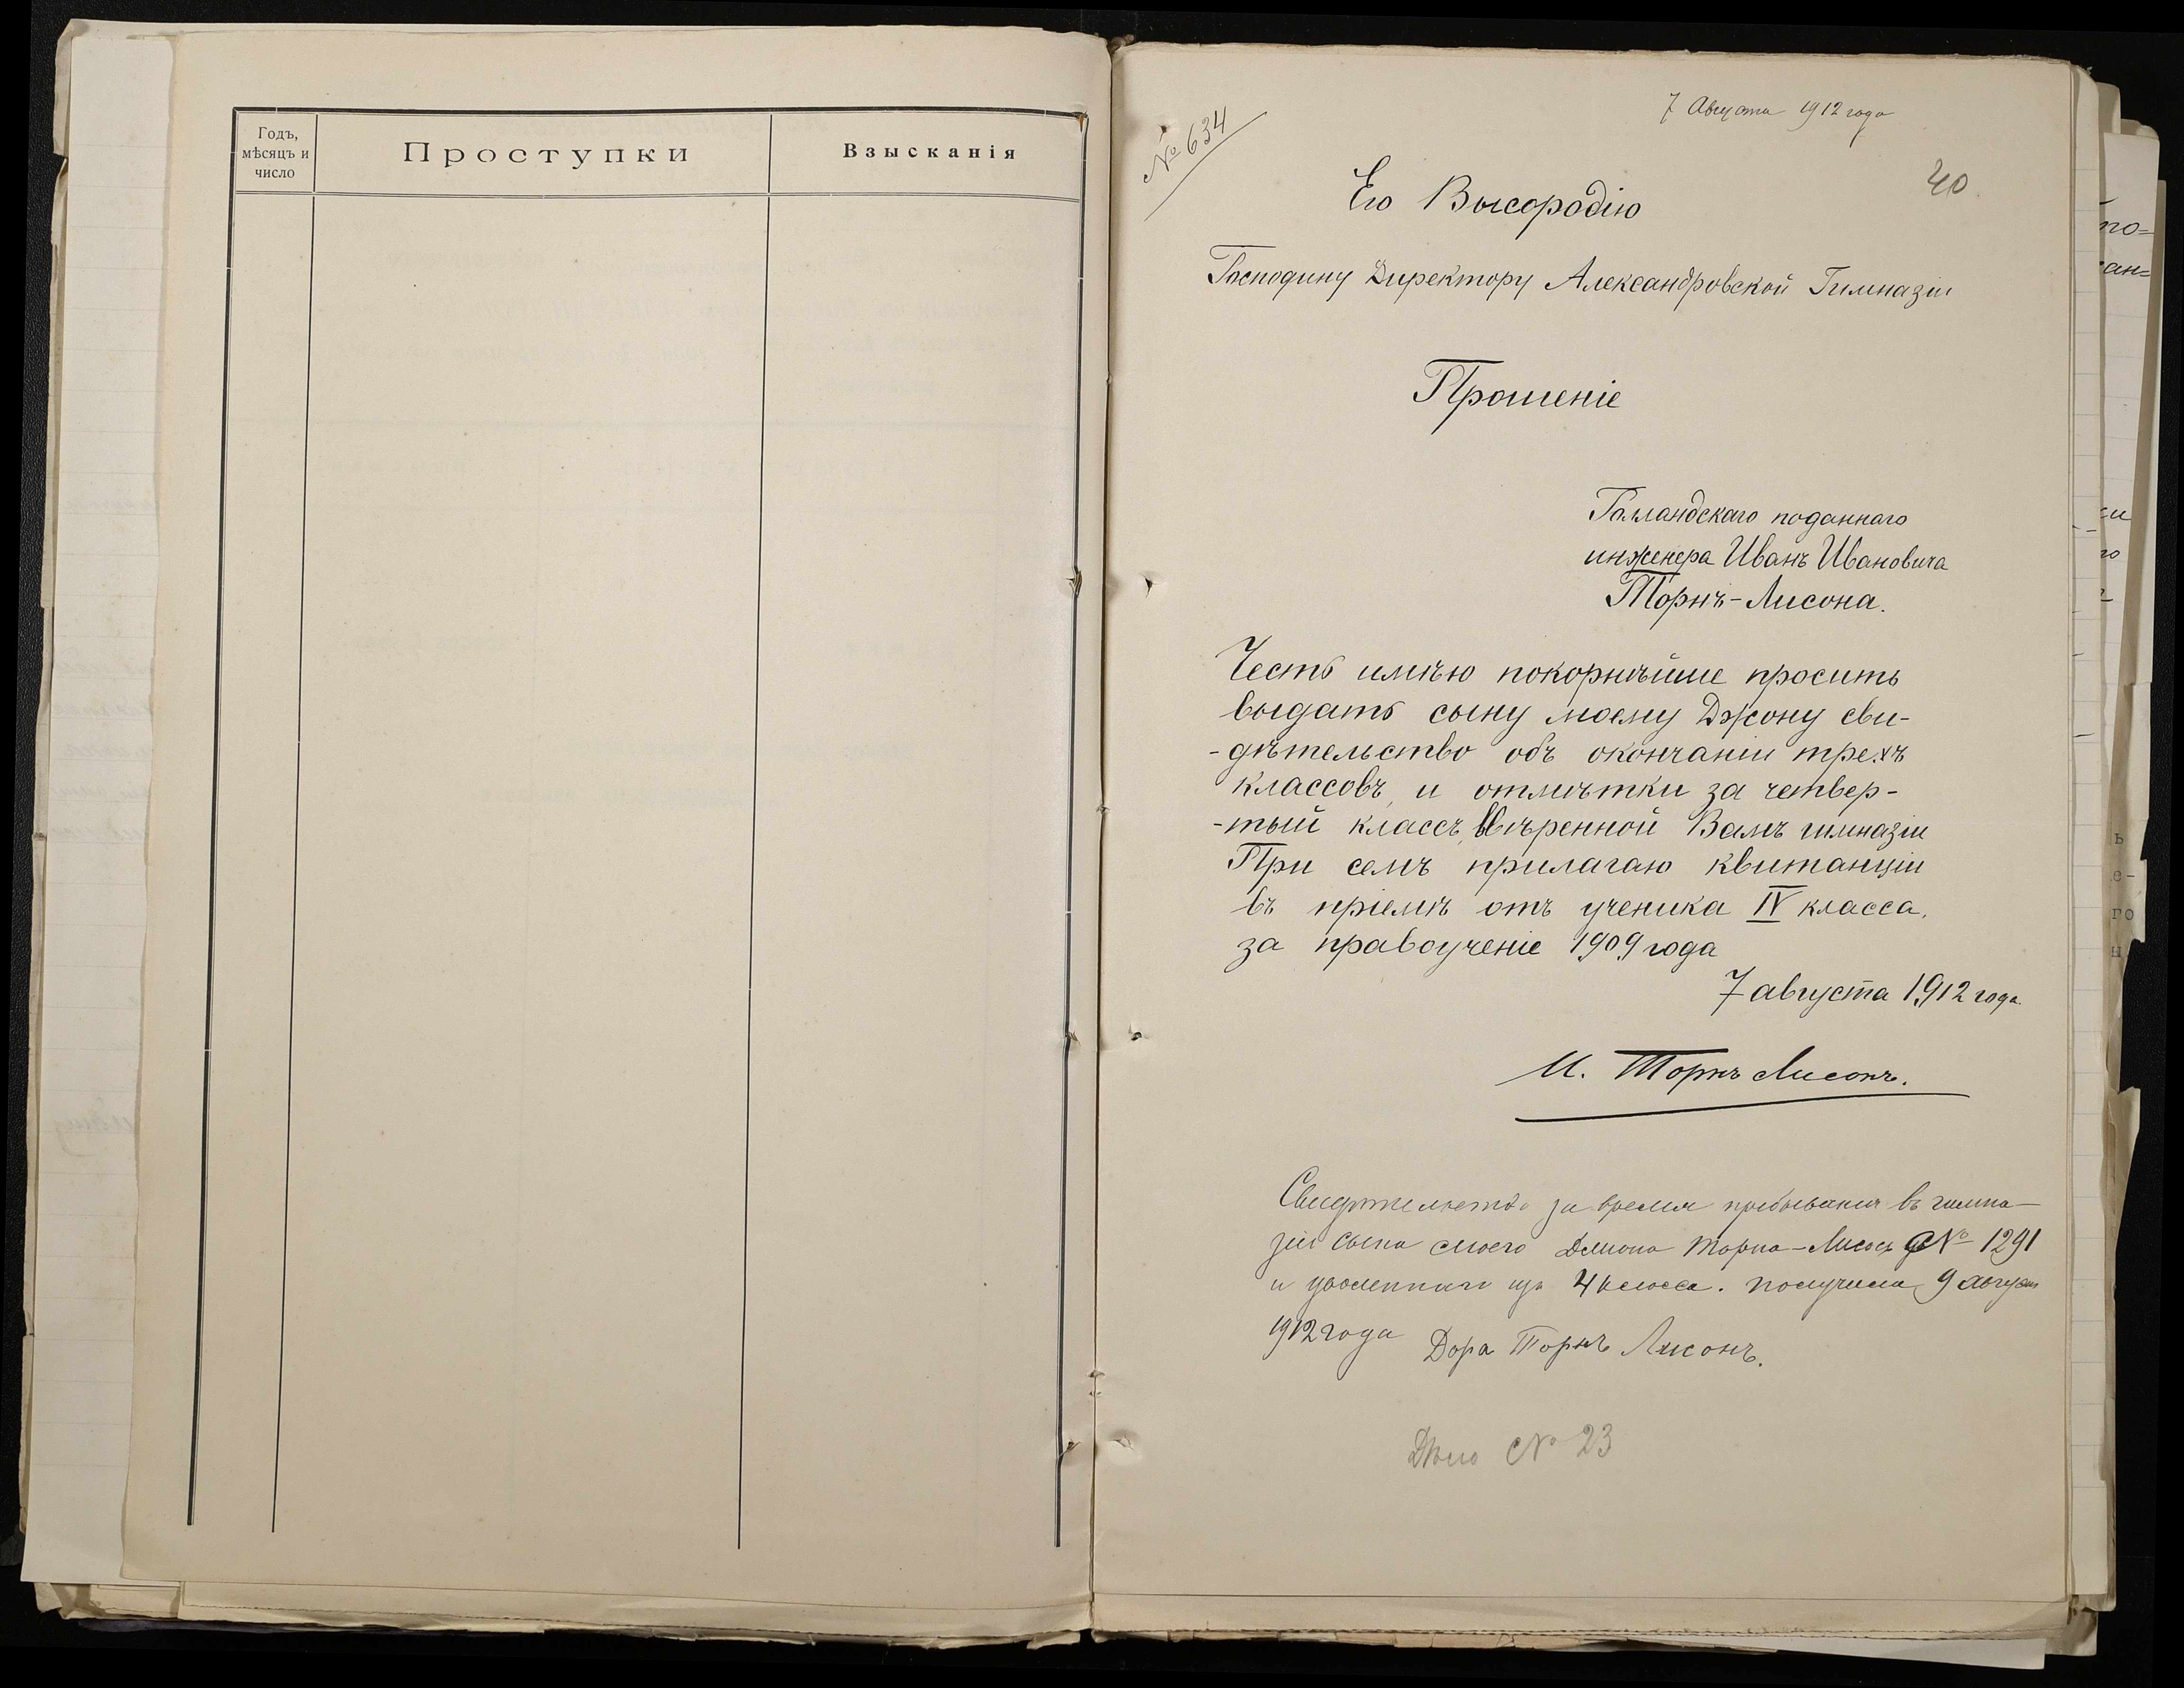 Годъ,
мѣсяцъ и
число
Проступки
Взысканія
№ 634
7 Августа 1912 года
40
Его Высородію
Господину Директору Александровской Гимназіи
Прошеніе
Голландскаго поданнаго
инженера Иванъ Ивановича
Торнъ-Лисона.
Честь имѣю покорнѣйше просить
выдать сыну моему Джону сви-
-дѣтельство объ окончаніи трехъ
классовъ, и отмѣтки за четвер-
-тый классъ, ввѣренной Вамъ гимназіи
При семъ прилагаю квитанціи
въ пріемѣ отъ ученика IV класса.
за правоученіе 1909 года
7 августа 1912 года.
И. Торнъ Лисонъ.
Свидѣтельство за время пребыванія въ гимна-
зіи сына моего Джона Торна-Лисонъ № 1291
и уволеннаго изъ 4 класса. получила 9 августа
1912 года
Дора Торнъ Лисонъ.
Дѣло № 23
по-
ан-
си
го
ь
е-
го
н